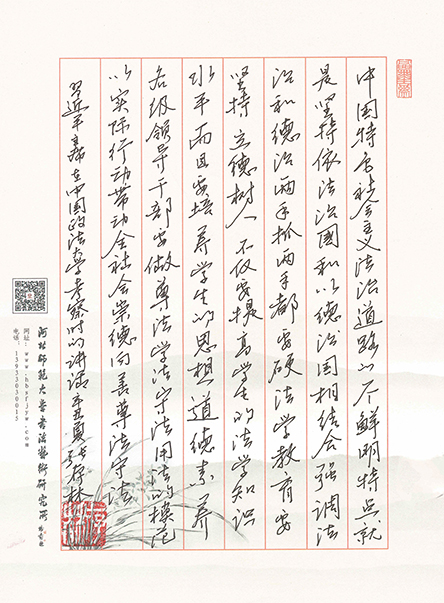 中国特色社会主义法治道路的一个鲜明特点就
是坚持依法治國和以德治国相结合强调法
治和德治两手抓两手都要硬法学教育要
坚持立德树人不仅要提高学生的法学知识
水平而且要培养学生的思想道德素养
各级领导干部要做尊法学法守法用法的模范
以实际行动带动全社会崇德向善尊法守法
习近平主席在中国政法大学考察时的讲话辛丑夏
河北师范大学书法艺术研究所
电话：15933030015